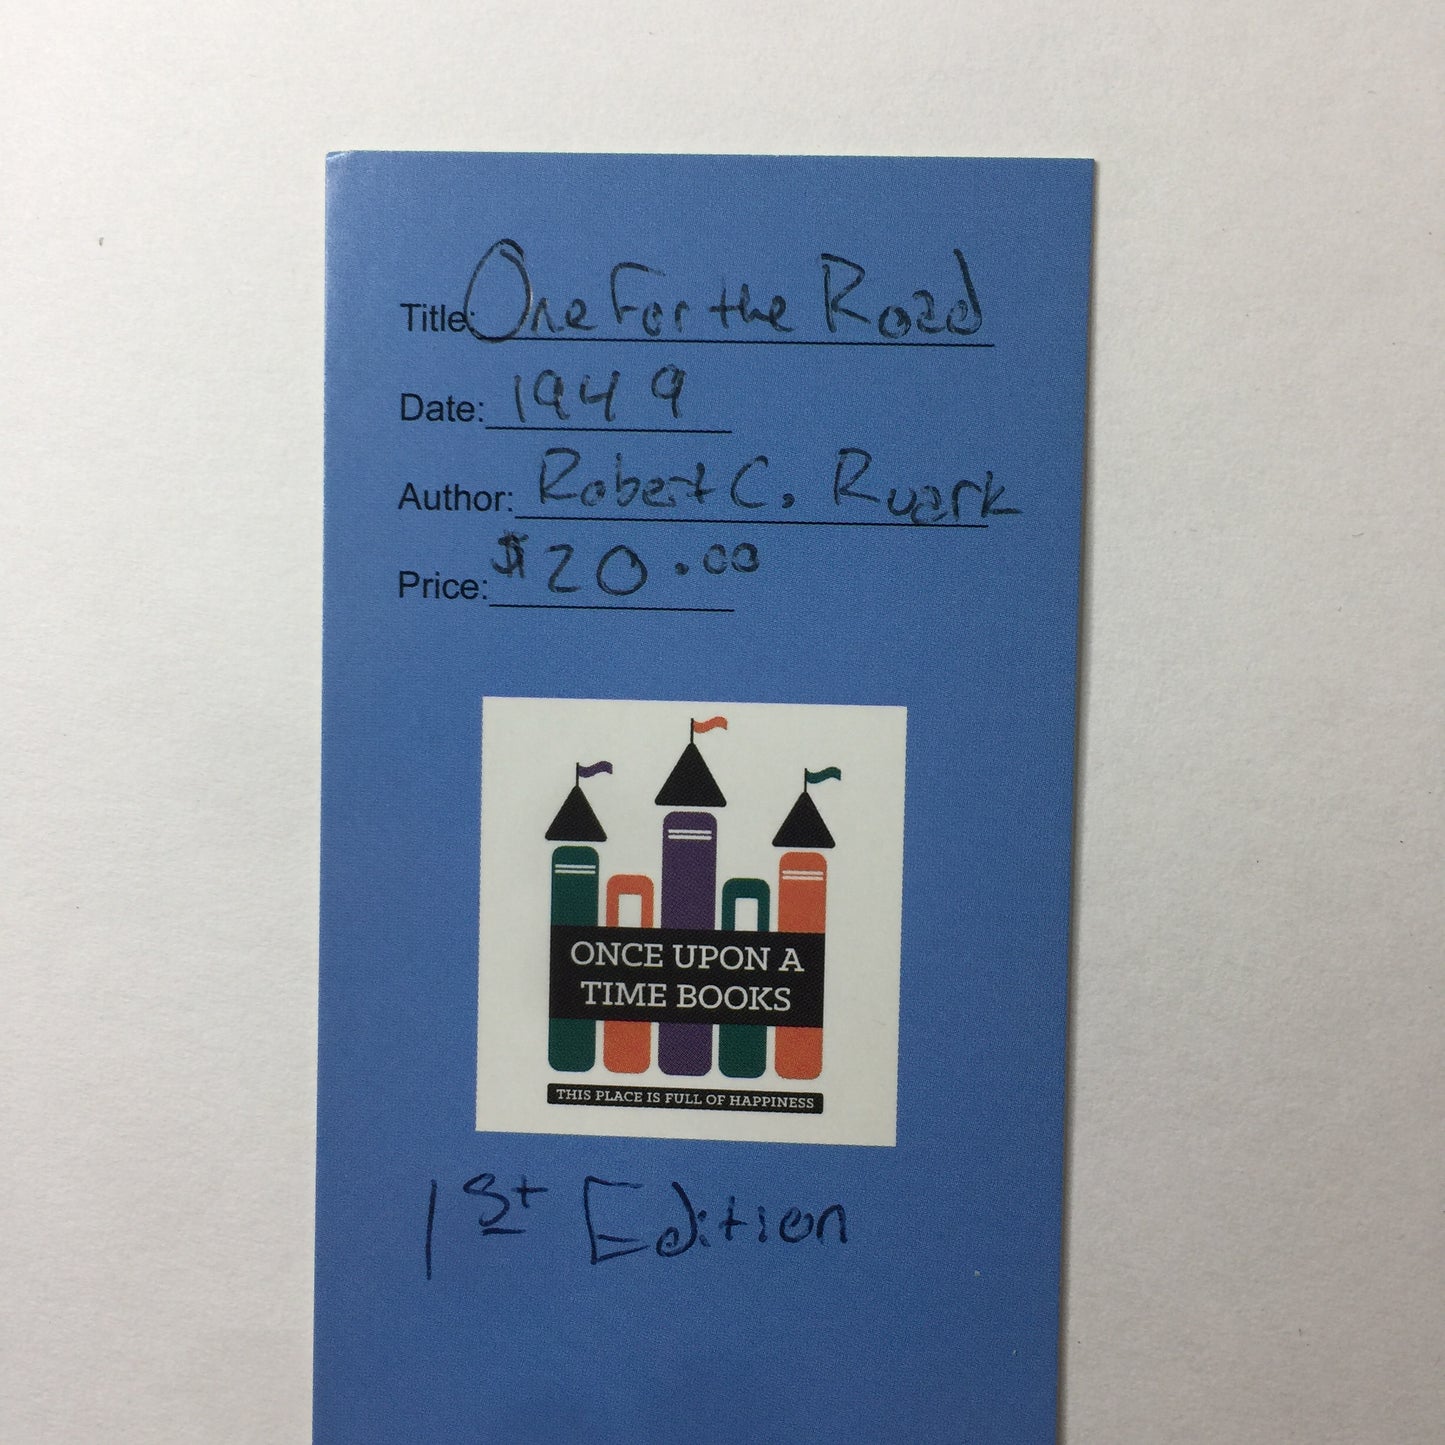 Title: One For the Road
Date: 1949
Author: Robert C. Ruark
Price: $20.00
ONCE UPON A
TIME BOOKS
THIS PLACE IS FULL OF HAPPINESS
1st Edition